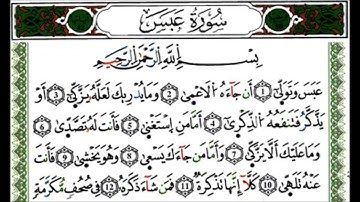 سُورَةُ عَبَسَ
بِسْمِ اللَّهِ الرَّحْمَٰنِ الرَّحِيمِ
عَبَسَ وَتَوَلَّىٰ ١ أَن جَاءَهُ الْأَعْمَىٰ ٢ وَمَا يُدْرِيكَ لَعَلَّهُ يَزَّكَّىٰ ٣ أَوْ
يَذَّكَّرُ فَتَنفَعَهُ الذِّكْرَىٰ ٤ أَمَّا مَنِ اسْتَغْنَىٰ ٥ فَأَنتَ لَهُ تَصَدَّىٰ ٦
وَمَا عَلَيْكَ أَلَّا يَزَّكَّىٰ ٧ وَأَمَّا مَن جَاءَكَ يَسْعَىٰ ٨ وَهُوَ يَخْشَىٰ ٩ فَأَنتَ
عَنْهُ تَلَهَّىٰ ١٠ كَلَّا إِنَّهَا تَذْكِرَةٌ ١١ فَمَن شَاءَ ذَكَرَهُ ١٢ فِي صُحُفٍ مُّكَرَّمَةٍ